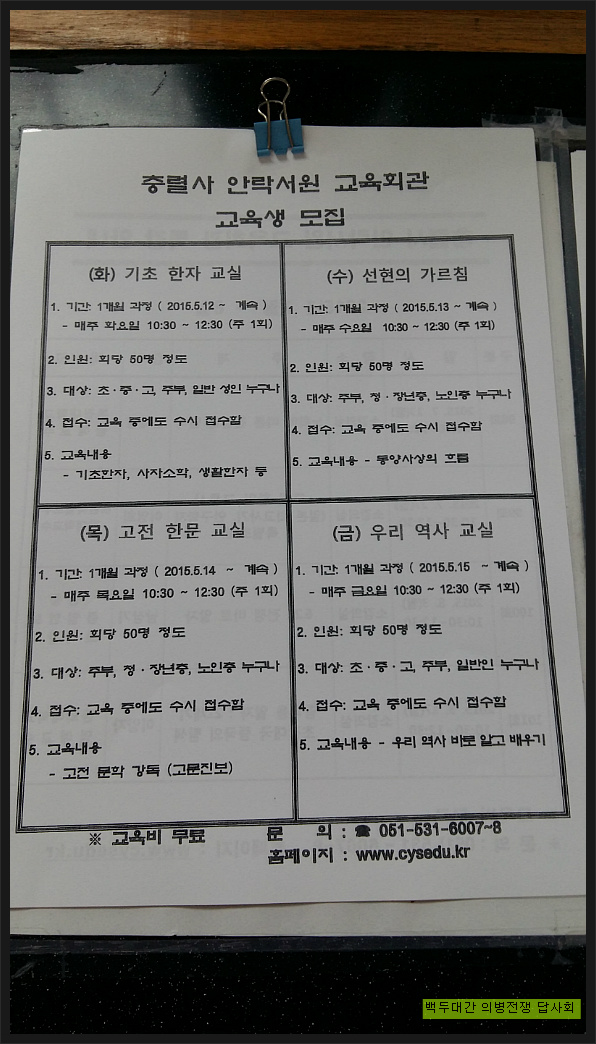 충렬사 안락서원 교육회관
교육생 모집
(화) 기초 한자 교실
1. 기간: 1개월 과정 ( 2015.5.12 ~ 계속 )
- 매주 화요일 10:30 ~ 12:30 (주 1회)
2. 인원: 회당 50명 정도
3. 대상: 초·중·고, 주부, 일반 성인 누구나
4. 접수: 교육 중에도 수시 접수함
5. 교육내용
- 기초한자, 사자소학, 생활한자 등
(수) 선현의 가르침
1. 기간: 1개월 과정 ( 2015.5.13 ~ 계속 )
- 매주 수요일 10:30 ~ 12:30 (주 1회)
2. 인원: 회당 50명 정도
3. 대상: 주부, 청·장년층, 노인층 누구나
4. 접수: 교육 중에도 수시 접수함
5. 교육내용 - 동양사상의 흐름
(목) 고전 한문 교실
1. 기간: 1개월 과정 ( 2015.5.14 ~ 계속 )
- 매주 목요일 10:30 ~ 12:30 (주 1회)
2. 인원: 회당 50명 정도
3. 대상: 주부, 청·장년층, 노인층 누구나
4. 접수: 교육 중에도 수시 접수함
5. 교육내용
- 고전 문학 강독 (고문진보)
(금) 우리 역사 교실
1. 기간: 1개월 과정 ( 2015.5.15 ~ 계속 )
- 매주 금요일 10:30 ~ 12:30 (주 1회)
2. 인원: 회당 50명 정도
3. 대상: 초·중·고, 주부, 일반인 누구나
4. 접수: 교육 중에도 수시 접수함
5. 교육내용 - 우리 역사 바로 알고 배우기
※ 교육비 무료 문 의 : ☎ 051-531-6007~8
홈페이지 : www.cysedu.kr
백두대간 의병전쟁 답사회